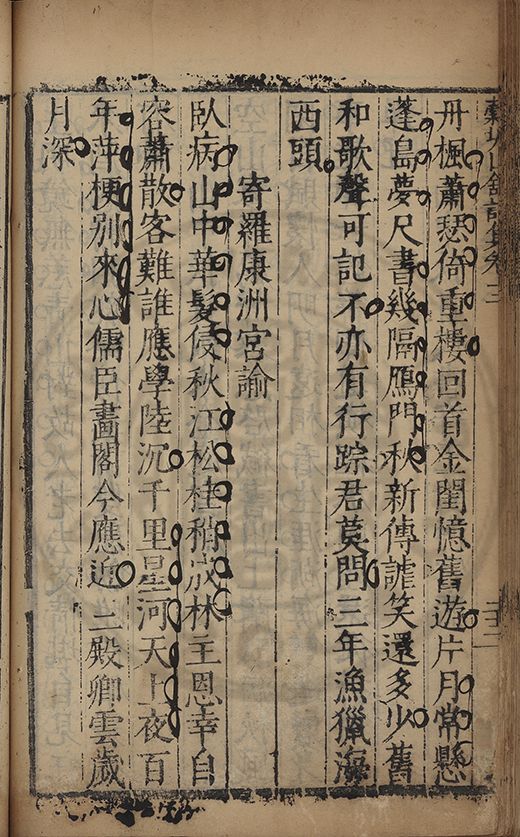 丹楓蕭瑟倚重樓回首金閨憶舊遊片月常懸
蓬島夢尺書幾隔鴈門秋新傳謔笑還多少舊
和歌聲可記不亦有行踪君莫問三年漁獵海
西頭
寄羅康洲宮諭
臥病山中華髮侵秋江松桂稍成林主恩幸自
容蕭散客難誰應學陸沉千里星河天上夜百
年萍梗別來心儒臣畫閣今應近二殿卿雲歲
月深